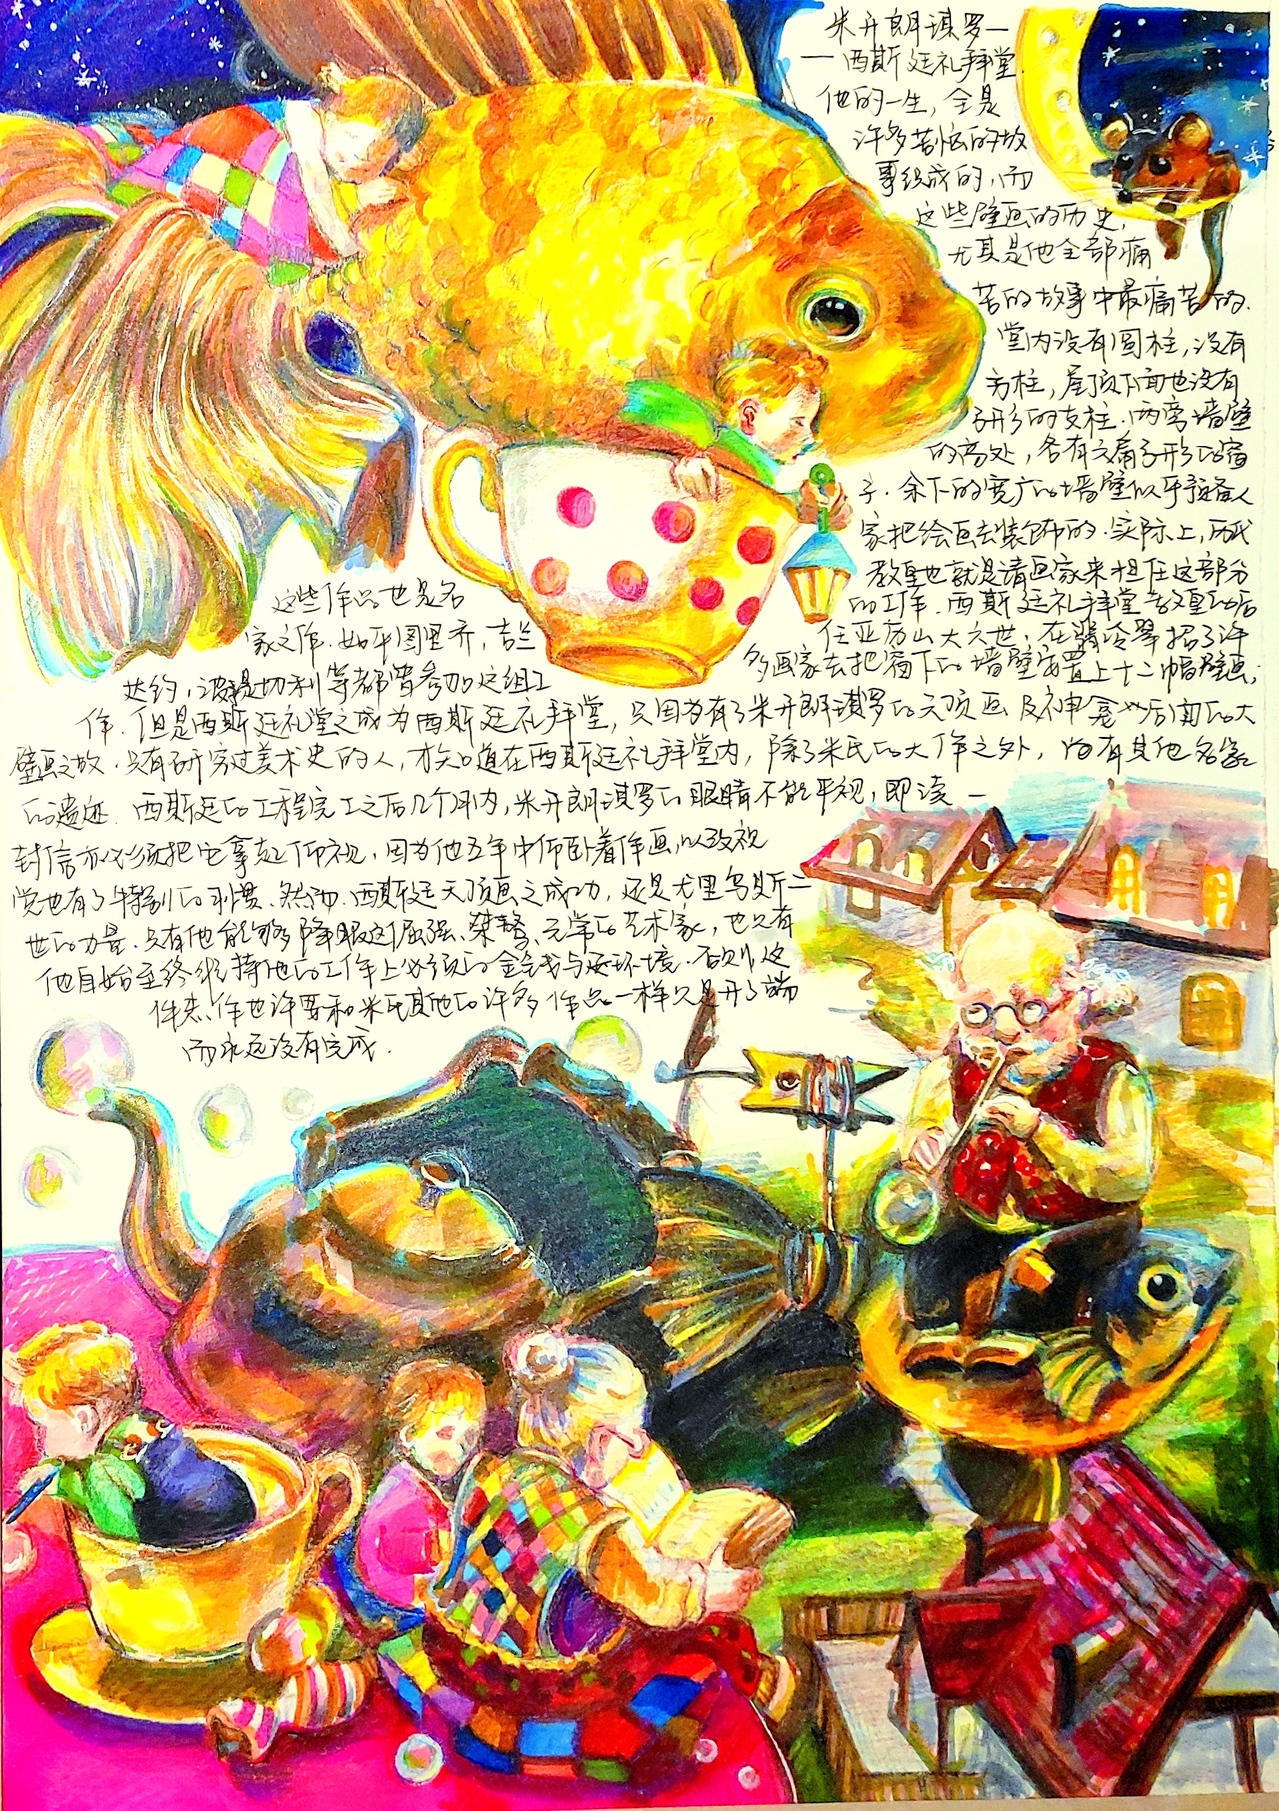 米开朗琪罗—
—西斯廷礼拜堂
他的一生，全是
许多苦恼的故
事组成的，而
这些壁画的历史，
尤其是他全部痛
苦的故事中最痛苦的.
堂内没有圆柱，没有
方柱，屋顶下面也没有
弓形的支柱.两旁墙壁
的高处，各有六扇弓形的窗
子.余下的宽广的墙壁似乎预备人
家把绘画去装饰的.实际上，历代
教皇也就是请画家来担任这部分
的工作.西斯廷礼拜堂教皇的后
任亚历山大六世，在翡冷翠招了许
多画家去把窗下的墙壁安置上十二幅壁画；
这些作品也是名
家之作.如平图里齐，吉兰
达约，波提切利等都曾参加这组工
作.但是西斯廷礼堂之成为西斯廷礼拜堂，只因为有了米开朗琪罗的天顶画及神龛后面的大
壁画之故.只有研究过美术史的人，才知道在西斯廷礼拜堂内，除了米氏的大作之外，尚有其他名家
的遗迹.西斯廷的工程完工之后几个月内，米开朗琪罗的眼睛不能平视，即读一
封信亦必须把它拿起仰视，因为他五年中仰卧着作画，以致视
觉也有了特别的习惯.然而.西斯廷天顶画之成功，还是尤里乌斯二
世的力量.只有他能够降服这倔强、桀骜、无常的艺术家，也只有
他自始至终维持他的工作上必须的金钱与环境.否则，这
件杰作也许要和米氏其他的许多作品一样只是开了端
而永远没有完成.